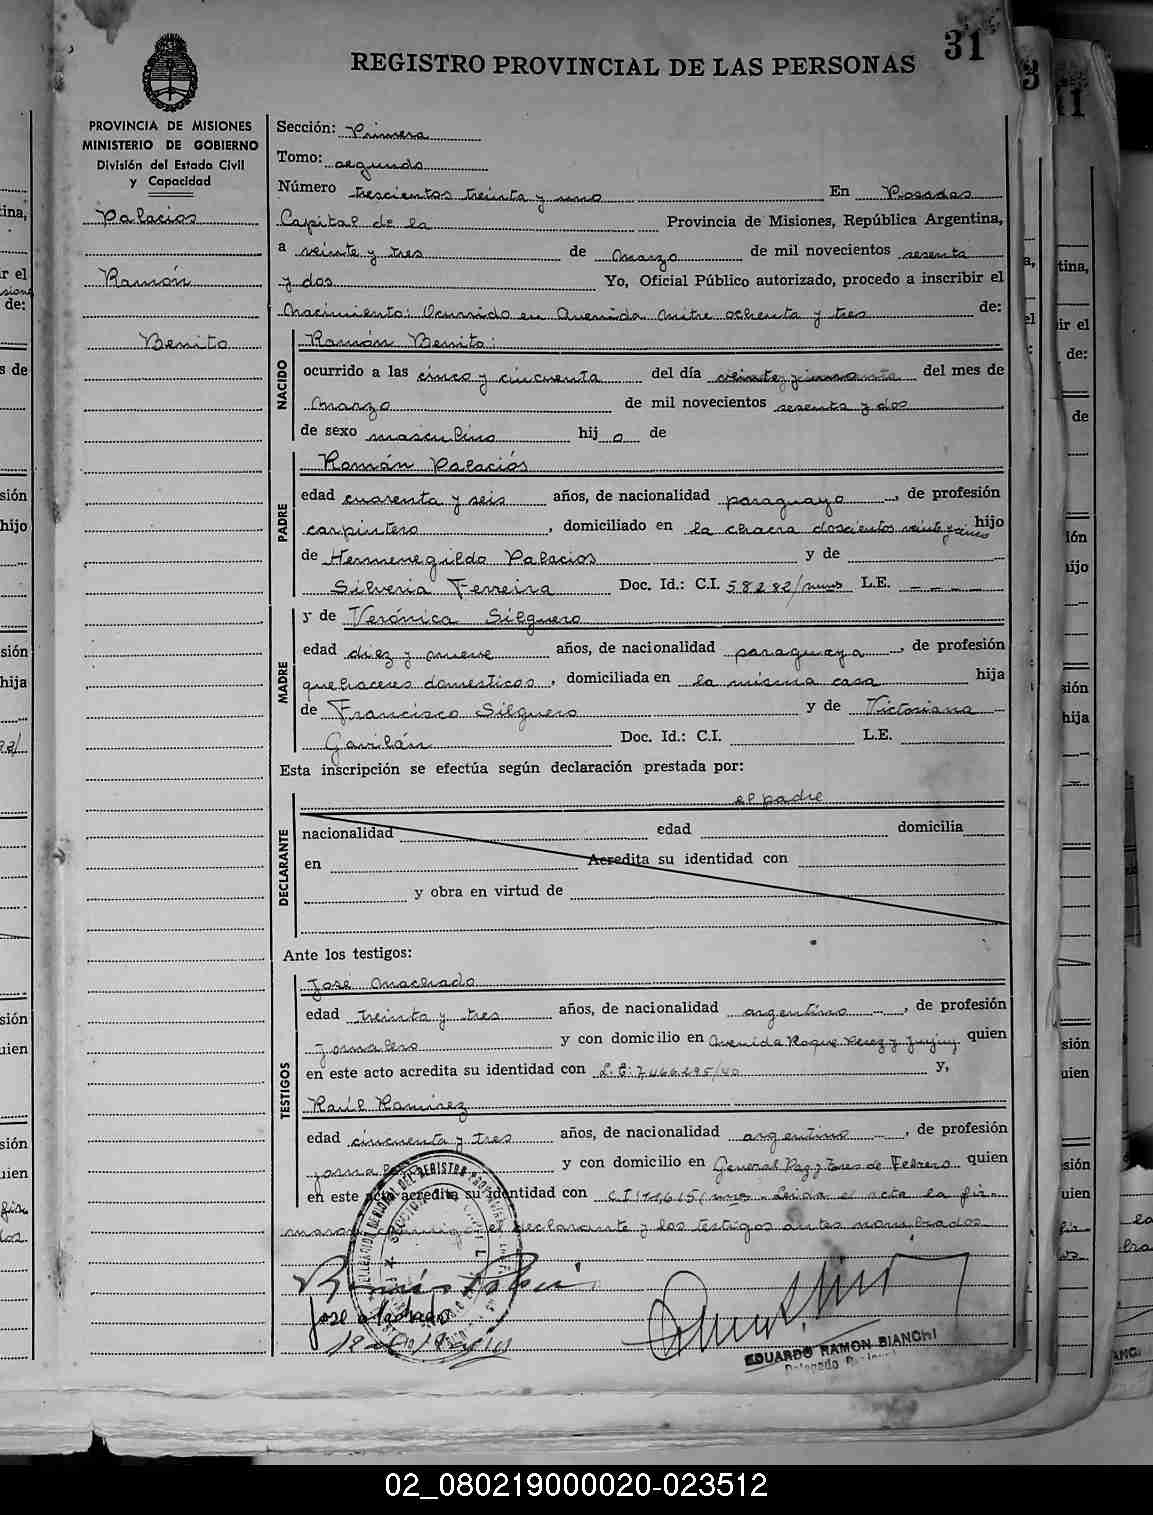 31
REGISTRO PROVINCIAL DE LAS PERSONAS
PROVINCIA DE MISIONES
MINISTERIO DE GOBIERNO
División del Estado Civil
y Capacidad
Palacios
Ramón
Benito
Sección: Primera
Tomo: segundo
Número trescientos treinta y uno En Posadas
Capital de la Provincia de Misiones, República Argentina,
a veinte y tres de Marzo de mil novecientos sesenta
y dos Yo, Oficial Público autorizado, procedo a inscribir el
Nacimiento: Ocurrido en Avenida Mitre ochenta y tres de:
NACIDO
Ramón Benito:
ocurrido a las cinco y cincuenta del día veinte y uno del mes de
Marzo de mil novecientos sesenta y dos
de sexo masculino hij o de
PADRE
Román Palacios
edad cuarenta y seis años, de nacionalidad paraguayo, de profesión
carpintero, domiciliado en la chacra doscientos veinte y cinco hijo
de Hermenegildo Palacios y de
Silveria Ferreira Doc. Id.: C.I. 58282/ L.E. ----
MADRE
y de Verónica Silguero
edad diez y nueve años, de nacionalidad paraguaya, de profesión
quehaceres domesticos, domiciliada en la misma casa hija
de Francisco Silguero y de Victoriana
Gavilán Doc. Id.: C.I. L.E.
Esta inscripción se efectúa según declaración prestada por:
DECLARANTE
el padre
nacionalidad edad domicilia
en Acredita su identidad con
y obra en virtud de
Ante los testigos:
TESTIGOS
José Machado
edad treinta y tres años, de nacionalidad argentino, de profesión
jornalero y con domicilio en Avenida Roque Perez y Jujuy quien
en este acto acredita su identidad con L.E: 7466295/40 y,
Raúl Ramirez
edad cincuenta y tres años, de nacionalidad argentino, de profesión
y con domicilio en General Paz y Tres de Febrero quien
en este acto acredita su identidad con C.I. Leida el acta la fir
man el declarante y los testigos antes nombrados
Jose Machado
EDUARDO RAMON BIANCHI
Delegado
02_080219000020-023512